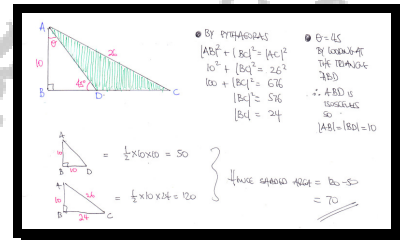 A
θ
10
26
45°
B
D
C
● BY PYTHAGORAS
|AB|² + |BC|² = |AC|²
10² + |BC|² = 26²
100 + |BC|² = 676
|BC|² = 576
|BC| = 24
● θ = 45
BY LOOKING AT
THE TRIANGLE
ABD
∴ ABD IS
ISOSCELES
SO
|AB| = |BD| = 10
A
10
B
10
D
= ½ × 10 × 10 = 50
A
10
26
B
24
C
= ½ × 10 × 24 = 120
HENCE SHADED AREA = 120 - 50
= 70